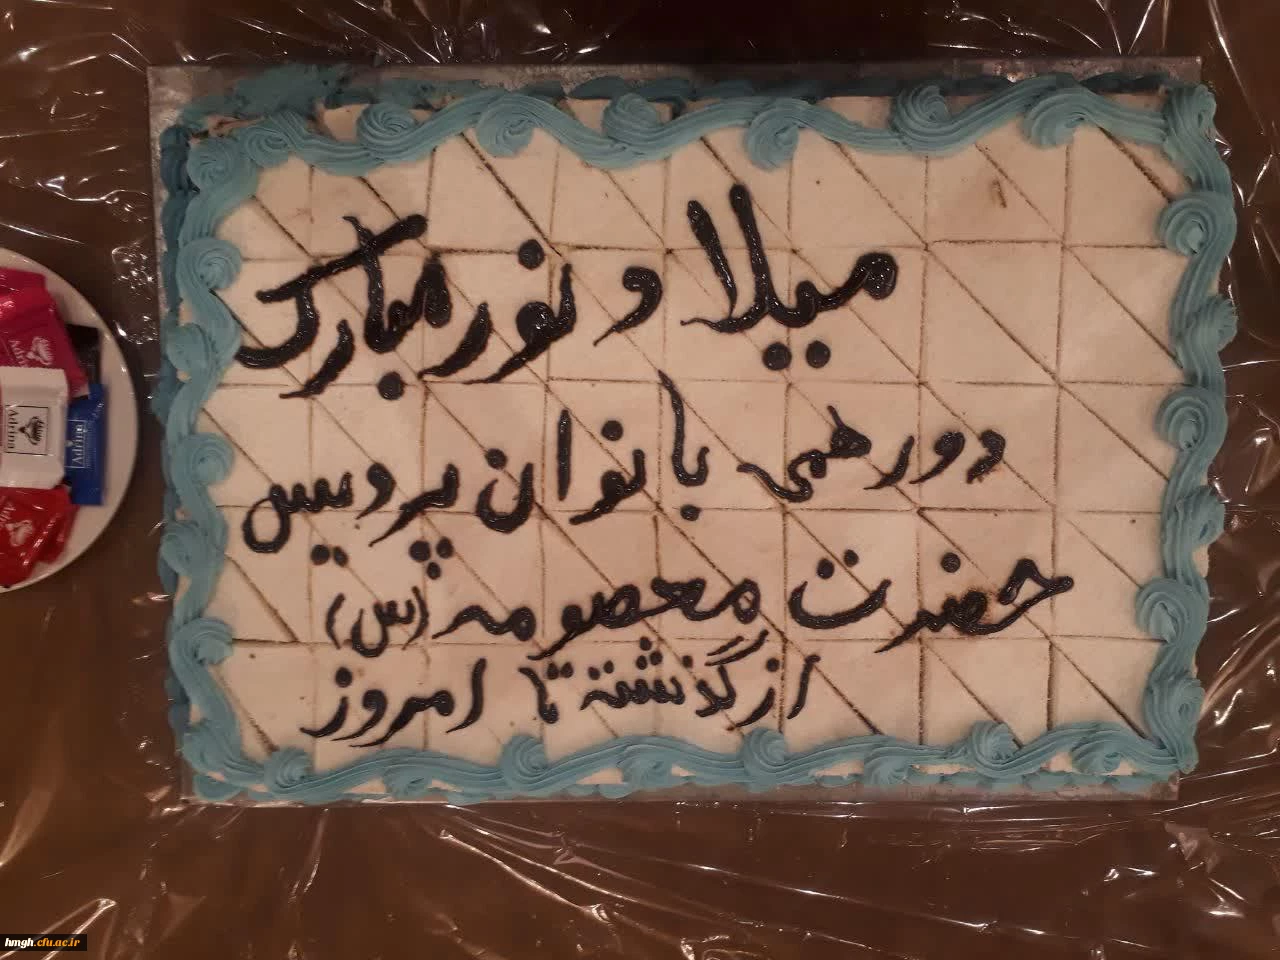 میلاد نور مبارک
دورهمی بانوان پردیس
حضرت معصومه (س)
از گذشته تا امروز
Adrina
Adrina
hmgh.cfu.ac.ir